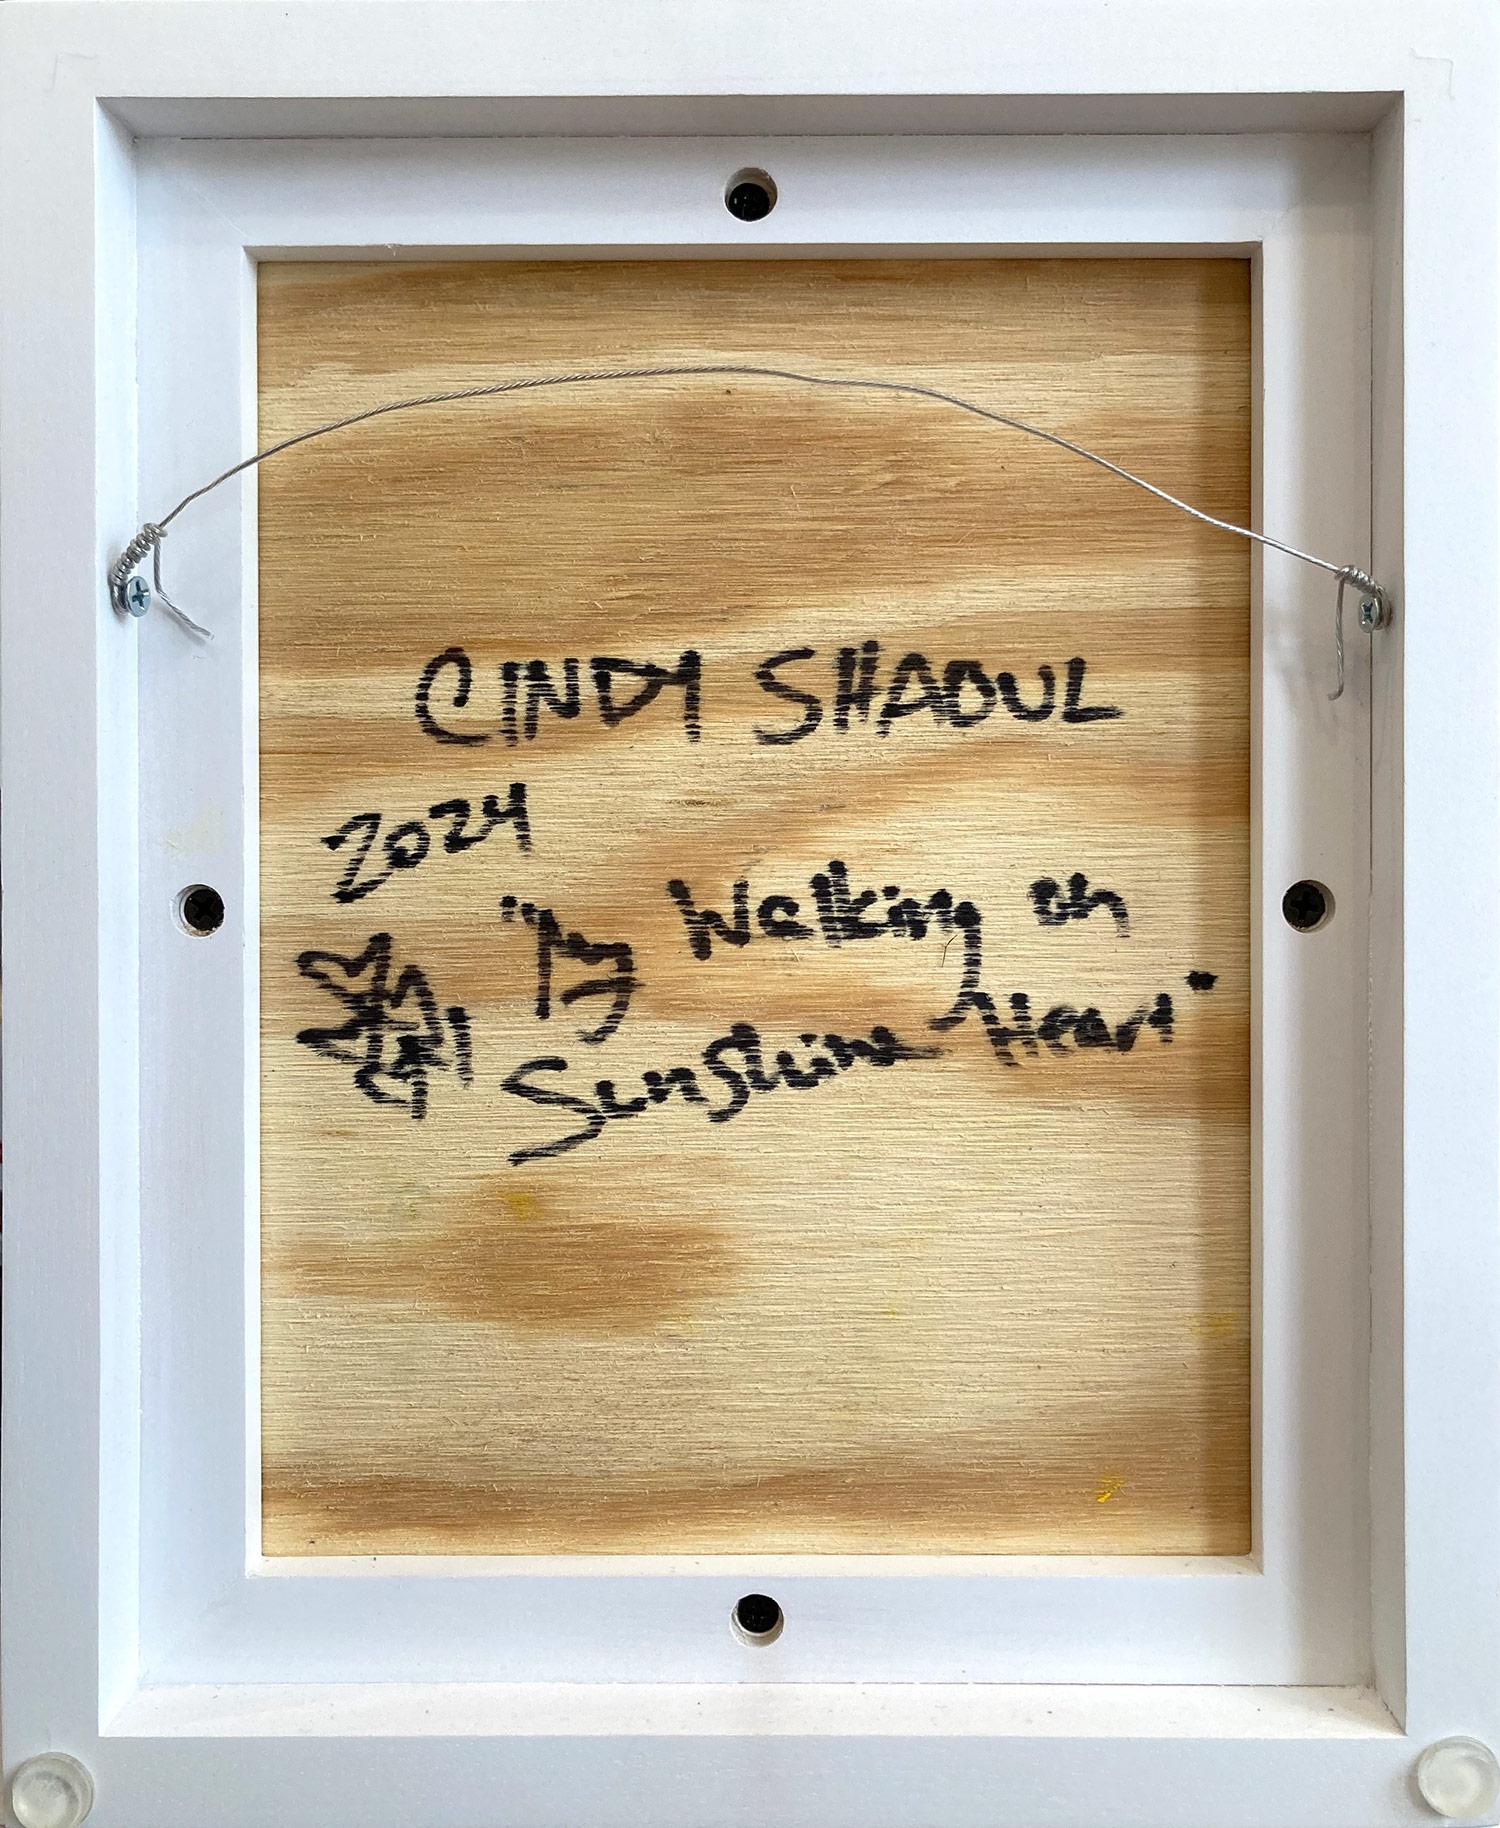 CINDY SHAOUL
2024
"My Walking on
Sunshine Heart"